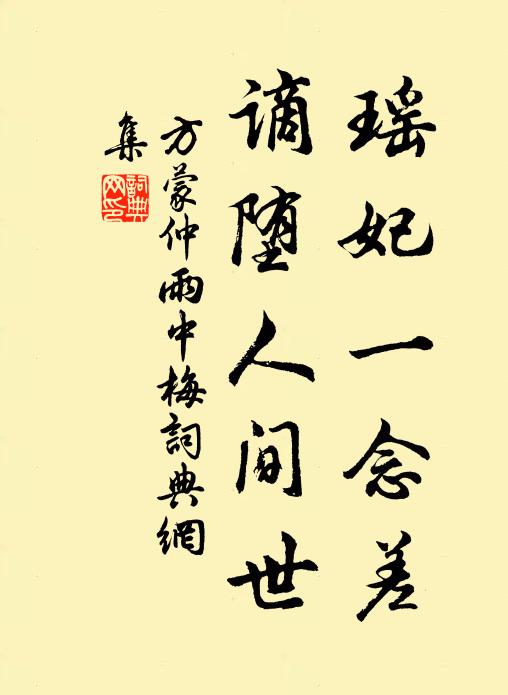 瑶妃一念差
谪堕人间世
方蒙仲雨中梅詞典網
集
詞典
网印